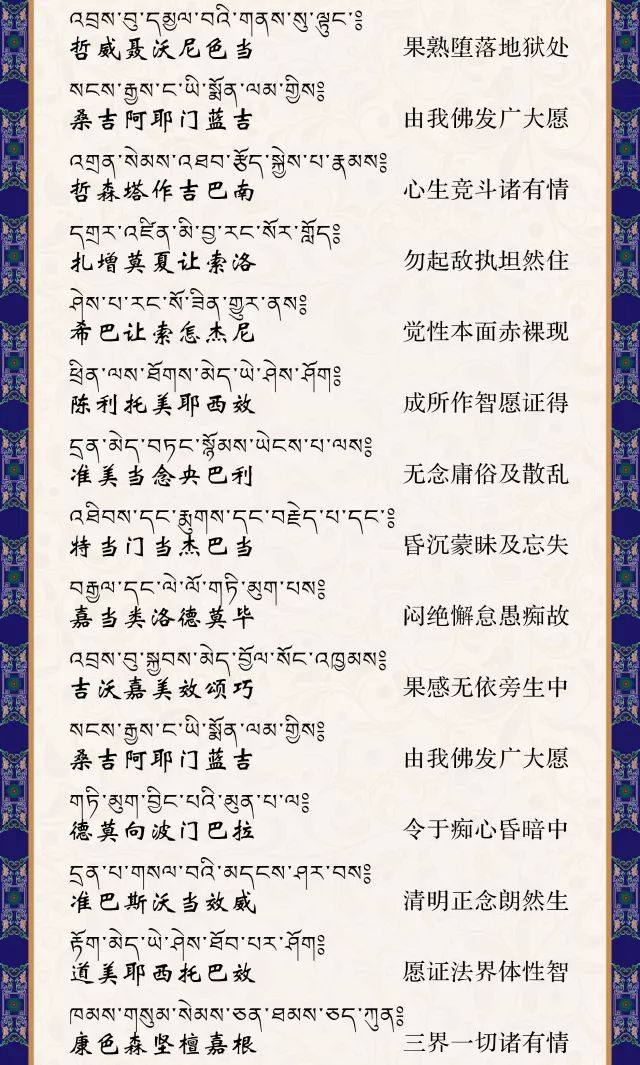 འབྲས་བུ་དམྱལ་བའི་གནས་སུ་ལྟུང་༔
哲威聂沃尼色当 果熟堕落地狱处
སངས་རྒྱས་ང་ཡི་སྨོན་ལམ་གྱིས༔
桑吉阿耶门蓝吉 由我佛发广大愿
འགྲན་སེམས་འཐབ་རྩོད་སྐྱེས་པ་རྣམས༔
哲森塔作吉巴南 心生竞斗诸有情
དགྲར་འཛིན་མི་བྱ་རང་སོར་གློད༔
扎增莫夏让索洛 勿起敌执坦然住
ཤེས་པ་རང་སོ་ཟིན་གྱུར་ནས༔
希巴让索怎杰尼 觉性本面赤裸现
ཕྲིན་ལས་ཐོགས་མེད་ཡེ་ཤེས་ཤོག༔
陈利托美耶西效 成所作智愿证得
དྲན་མེད་བཏང་སྙོམས་ཡེངས་པ་ལས༔
准美当念央巴利 无念庸俗及散乱
འཐིབས་དང་རྨུགས་དང་བརྗེད་པ་དང་༔
特当门当杰巴当 昏沉蒙昧及忘失
བརྒྱལ་དང་ལེ་ལོ་གཏི་མུག་པས༔
嘉当类洛德莫毕 闷绝懈怠愚痴故
འབྲས་བུ་སྐྱབས་མེད་བྱོལ་སོང་འཁྱམས༔
吉沃嘉美效颂巧 果感无依旁生中
སངས་རྒྱས་ང་ཡི་སྨོན་ལམ་གྱིས༔
桑吉阿耶门蓝吉 由我佛发广大愿
གཏི་མུག་བྱིང་པའི་མུན་པ་ལ༔
德莫向波门巴拉 令于痴心昏暗中
དྲན་པ་གསལ་བའི་མདངས་ཤར་བས༔
准巴斯沃当效威 清明正念朗然生
རྟོག་མེད་ཡེ་ཤེས་ཐོབ་པར་ཤོག༔
道美耶西托巴效 愿证法界体性智
ཁམས་གསུམ་སེམས་ཅན་ཐམས་ཅད་ཀུན༔
康色森坚檀嘉根 三界一切诸有情